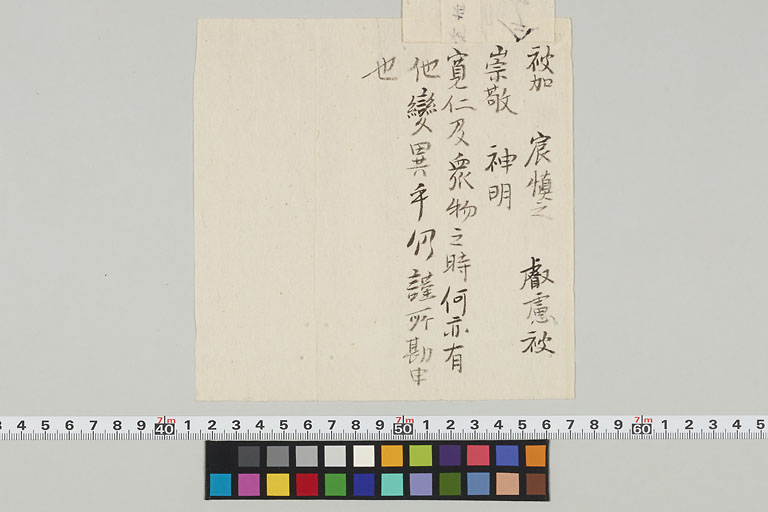 被加 宸慎之 叡慮被
崇敬 神明
寛仁及衆物之時何亦有
他變異乎仍謹所勘申
也
3 4 5 6 7 8 9 40 1 2 3 4 5 6 7 8 9 50 1 2 3 4 5 6 7 8 9 60 1 2 3 4 5
7m 7m 7m